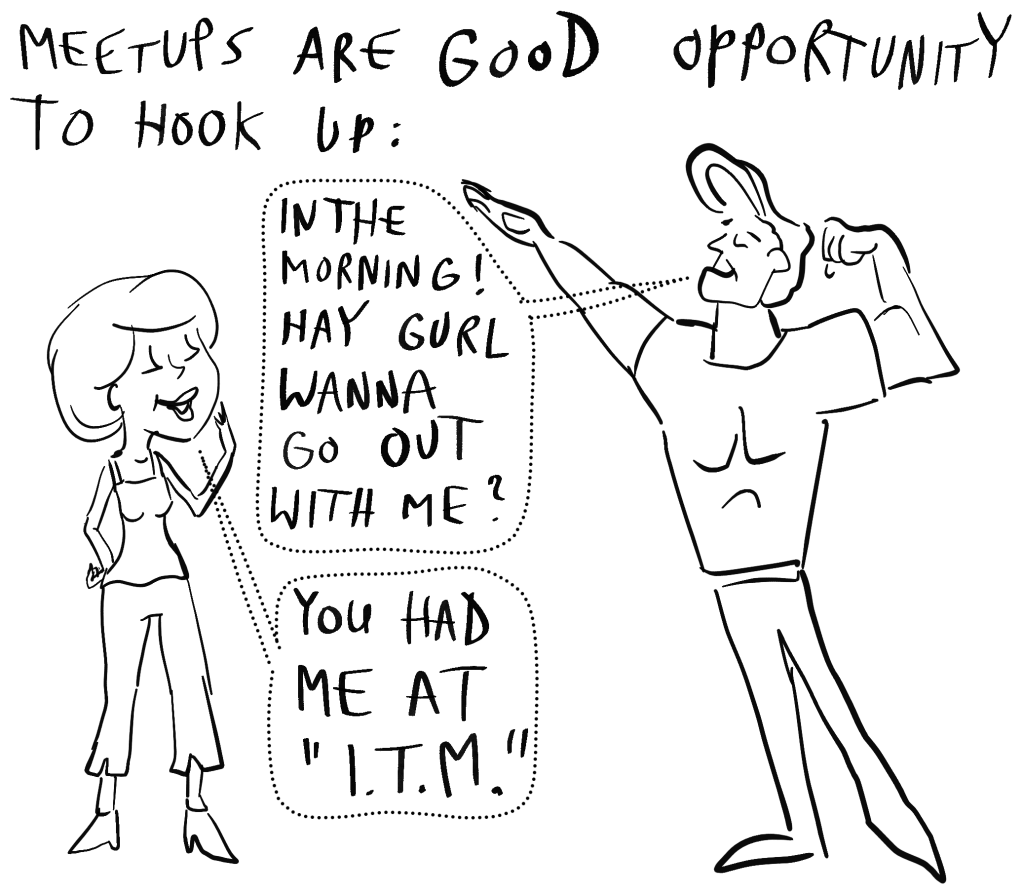 MEETUPS ARE GOOD OPPORTUNITY
TO HOOK UP:
IN THE
MORNING!
HAY GURL
WANNA
GO OUT
WITH ME?
YOU HAD
ME AT
"I.T.M."